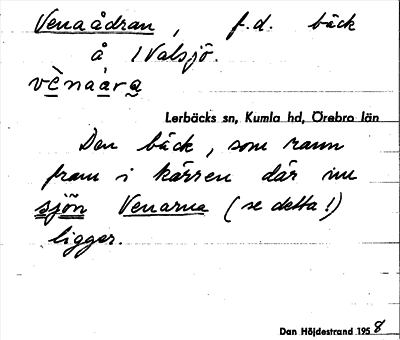 Venaådran, f.d. bäck
å Valsjö.
vènaára
Lerbäcks sn, Kumla hd, Örebro län
Den bäck, som rann
fram i kärren där nu
sjön Venarna (se detta!)
ligger.
Dan Höjdestrand 1958